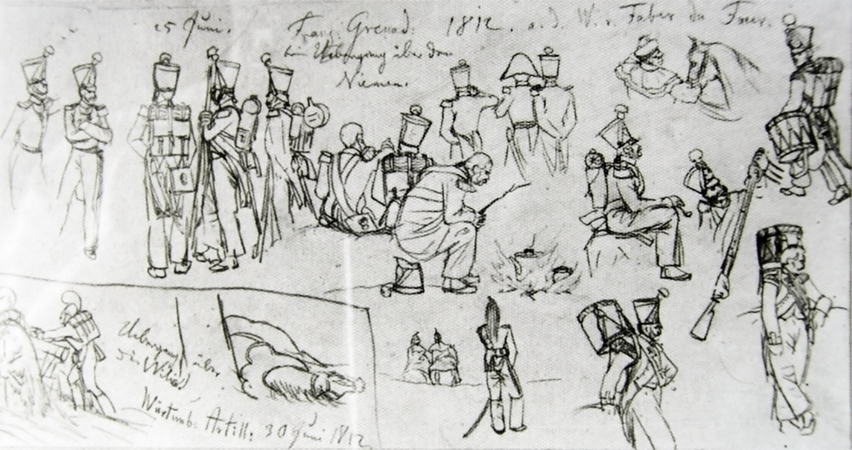 25 Juni. Franz. Grenad. 1812. a. d. W. v. Faber du Faur.
beim Uebergang über den
Niemen.
Uebergang über
die Wilia
Würtemb. Artill. 30 Juni 1812